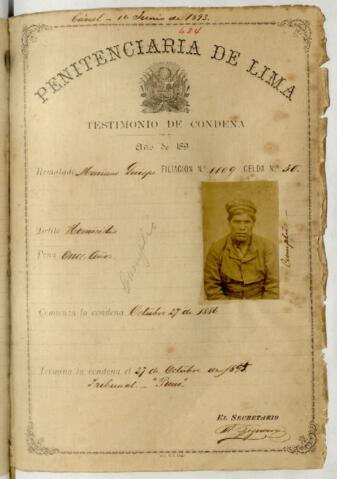 Cárcel - 10 Junio de 1893.
684
PENITENCIARIA DE LIMA
TESTIMONIO DE CONDENA
Año de 189
Rematado Mariano Quispe FILIACION N.° 1109 CELDA N.° 50.
Delito Homicidio
Pena Once años
Cumplió
Cumplió
Comienza la condena Octubre 27 de 1886
Termina la condena el 27 de Octubre de 1895.
Tribunal - "Puno"
EL SECRETARIO